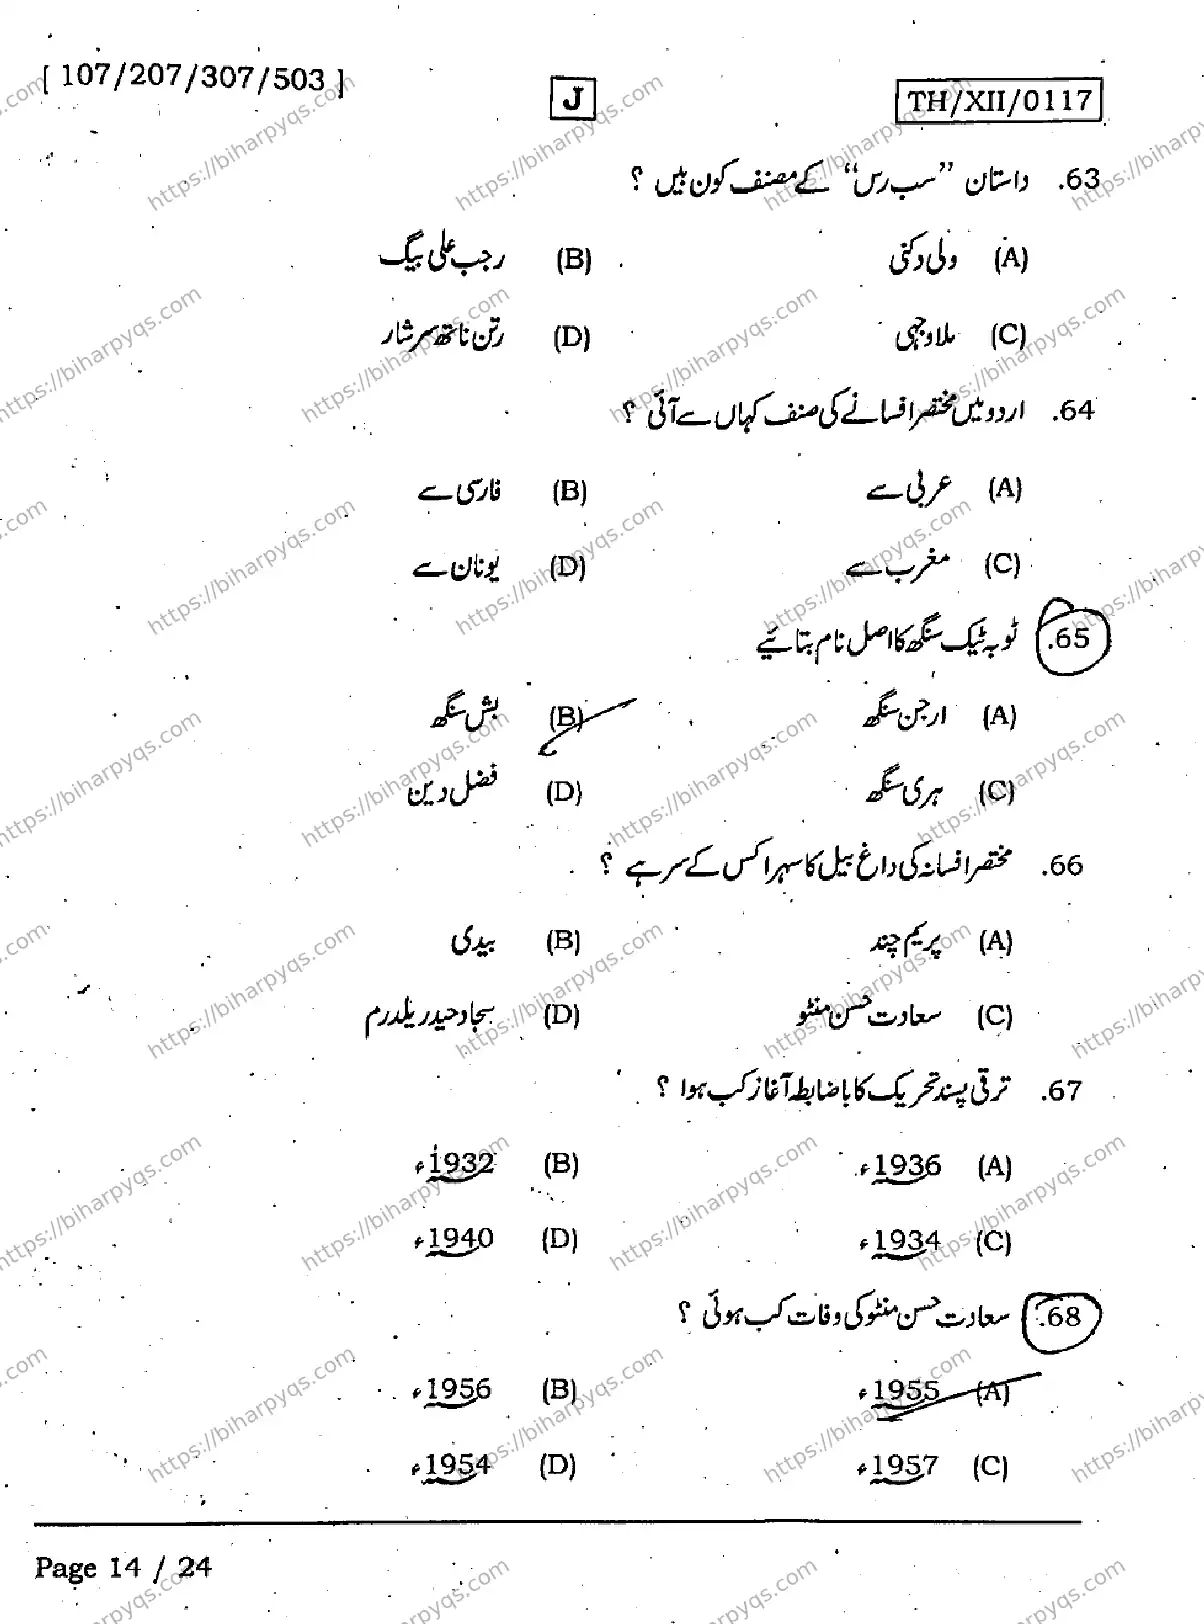 [ 107/207/307/503 ]
J
TH/XII/0117
63. داستان ”سب رس“ کے مصنف کون ہیں ؟
(A) ولی دکنی (B) رجب علی بیگ
(C) ملا وجہی (D) رتن ناتھ سرشار
64. اردو میں مختصر افسانے کی صنف کہاں سے آئی ؟
(A) عربی سے (B) فارسی سے
(C) مغرب سے (D) یونان سے
65. ٹوبہ ٹیک سنگھ کا اصل نام بتائیے
(A) ارجن سنگھ (B) بش سنگھ
(C) ہری سنگھ (D) فضل دین
66. مختصر افسانہ کی داغ بیل کا سہرا کس کے سر ہے ؟
(A) پریم چند (B) بیدی
(C) سعادت حسن منٹو (D) سجاد حیدر یلدرم
67. ترقی پسند تحریک کا باضابطہ آغاز کب ہوا ؟
(A) 1936ء (B) 1932ء
(C) 1934ء (D) 1940ء
68. سعادت حسن منٹو کی وفات کب ہوئی ؟
(A) 1955ء (B) 1956ء
(C) 1957ء (D) 1954ء
Page 14 / 24
https://biharpyqs.com